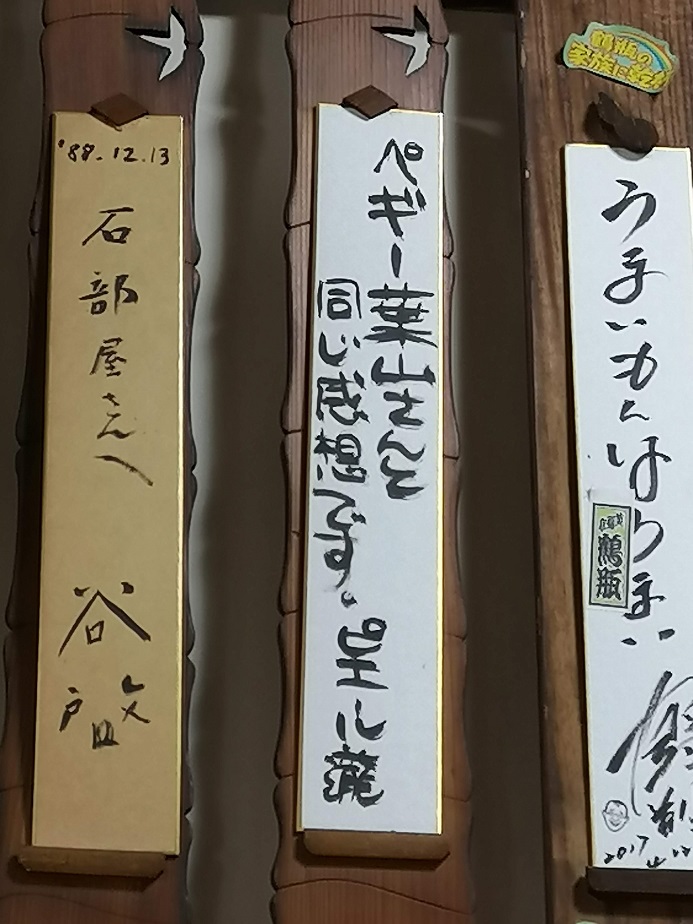 '88.12.13
石部屋さんへ
谷啓
ペギー葉山さんと
同じ感想です。ピエール瀧
鶴瓶の
家族に乾杯
うまいもんはうまい
鶴瓶
2017